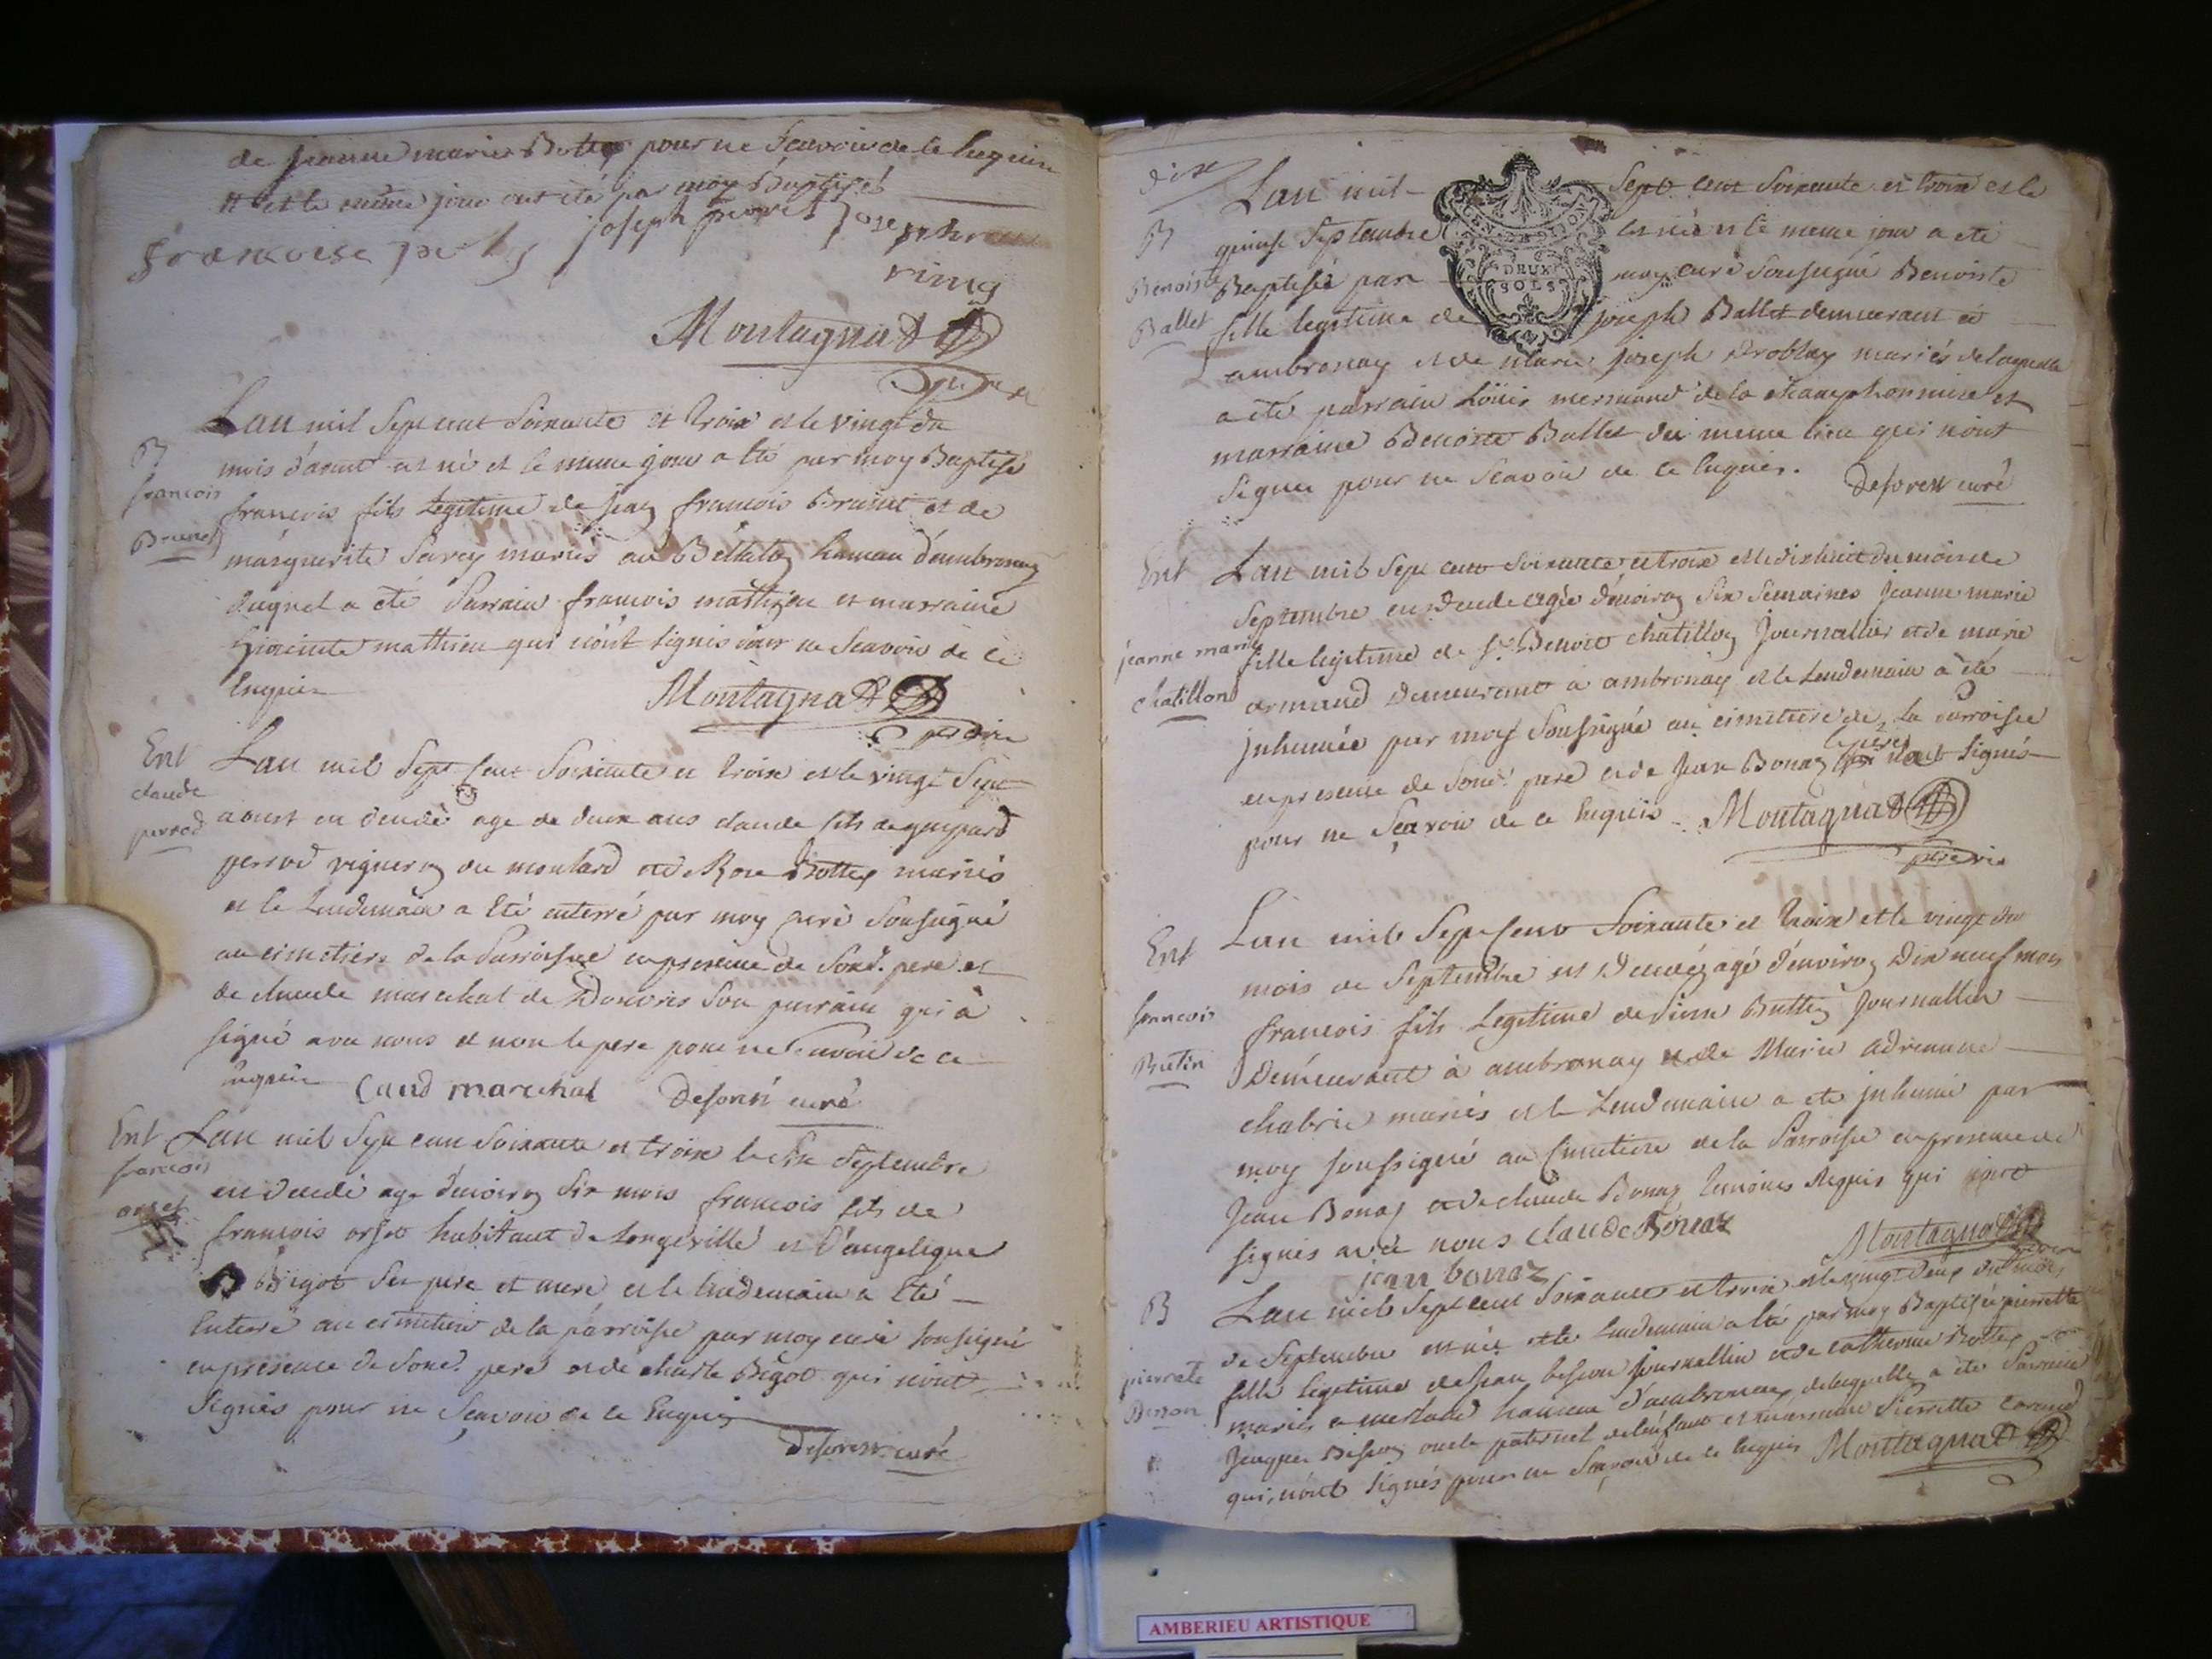 de jeanne marie Bottex pour ne scavoir de ce enquis
et le même jour ont été par moy Baptisés
joseph
francoise
Montagnat
Lan mil sept cent soixante et trois et le vingt du
B
mois d'aoust est né et le même jour a été par moy Baptisé
francois
francois fils legitime de jean francois Brunet et de
Brunet
marguerite Savey mariés au hameau d'ambronay
duquel a été parrain francois mathieu et marraine
mathieu qui n'ont signés pour ne scavoir de ce
enquis
Montagnat
Ent
Lan mil sept cent soixante et trois et le vingt sept
claude
aoust est decedé age de deux ans claude fils de gaspard
perrod
perrod vigneron du moulard et de Rose Bottex mariés
et le lendemain a été enterré par moy curé soussigné
au cimetiere de la parroisse en presence de sond. pere et
de claude marechal de Douvres son parrain qui a
signé avec nous et non le pere pour ne scavoir de ce
enquis
Caud marechal
Deforest curé
Ent
Lan mil sept cent soixante et trois le six septembre
francois
est decedé age d'environ six mois francois fils de
orset
francois orset habitant de longeville et d'angelique
Bigot ses pere et mere et le lendemain a été
enterré au cimetiere de la parroisse par moy curé soussigné
en presence de sond. pere et de charle Bigot qui n'ont
signés pour ne sçavoir de ce enquis
Deforest curé
dixe
Lan mil sept cent soixante et trois et le
B
quinse septembre est née et le meme jour a été
DEUX
SOLS
Benoiste
Baptisée par moy curé soussigné Benoiste
Ballet
fille legitime de joseph Ballet demeurant à
ambronay et de marie joseph mariés de laquelle
a été parrain Loüis mermand de la et
marraine Benoite Ballet du meme lieu qui n'ont
signer pour ne scavoir de ce enquis.
Deforest curé
Ent
Lan mil sept cent soixante et trois et le dixhuit du mois de
septembre est decedée agée d'environ six semaines Jeanne marie
jeanne marie
fille legitime de Sr Benoit chatillon Journallier et de marie
chatillon
armand demeurant a ambronay et le lendemain a été
inhumée par moy soussigné au cimetiere de la parroisse
en presence de sond. pere et de Jean Bonaz le pere n'a signés
pour ne sçavoir de ce enquis
Montagnat
Ent
Lan mil sept cent soixante et trois et le vingt du
mois de septembre est decedé agé d'environ Dix neuf mois
francois
francois fils legitime de Pierre Buttin Journallier
Butin
Demeurant à ambronay et de Marie adrienne
chabrié mariés et le lendemain a été inhumé par
moy soussigné au cimetiere de la Parroisse en presence de
Jean Bonaz et de claude Bonaz temoins Requis qui
signés avec nous claude Bonaz
jean bonaz
Montagnat
B
Lan mil sept cent soixante et trois et le vingt deux du mois
de septembre est née et le lendemain a été par moy Baptisée pierrette
pierrete
fille legitime de jean besson journallier et de catherine Bottex
Besson
mariés a hameau d'ambronay de laquelle a été parrain
Jacques Besson oncle paternel de l'enfant et marraine Pierrette
qui n'ont signés pour ne sçavoir de ce enquis
Montagnat
AMBERIEU ARTISTIQUE